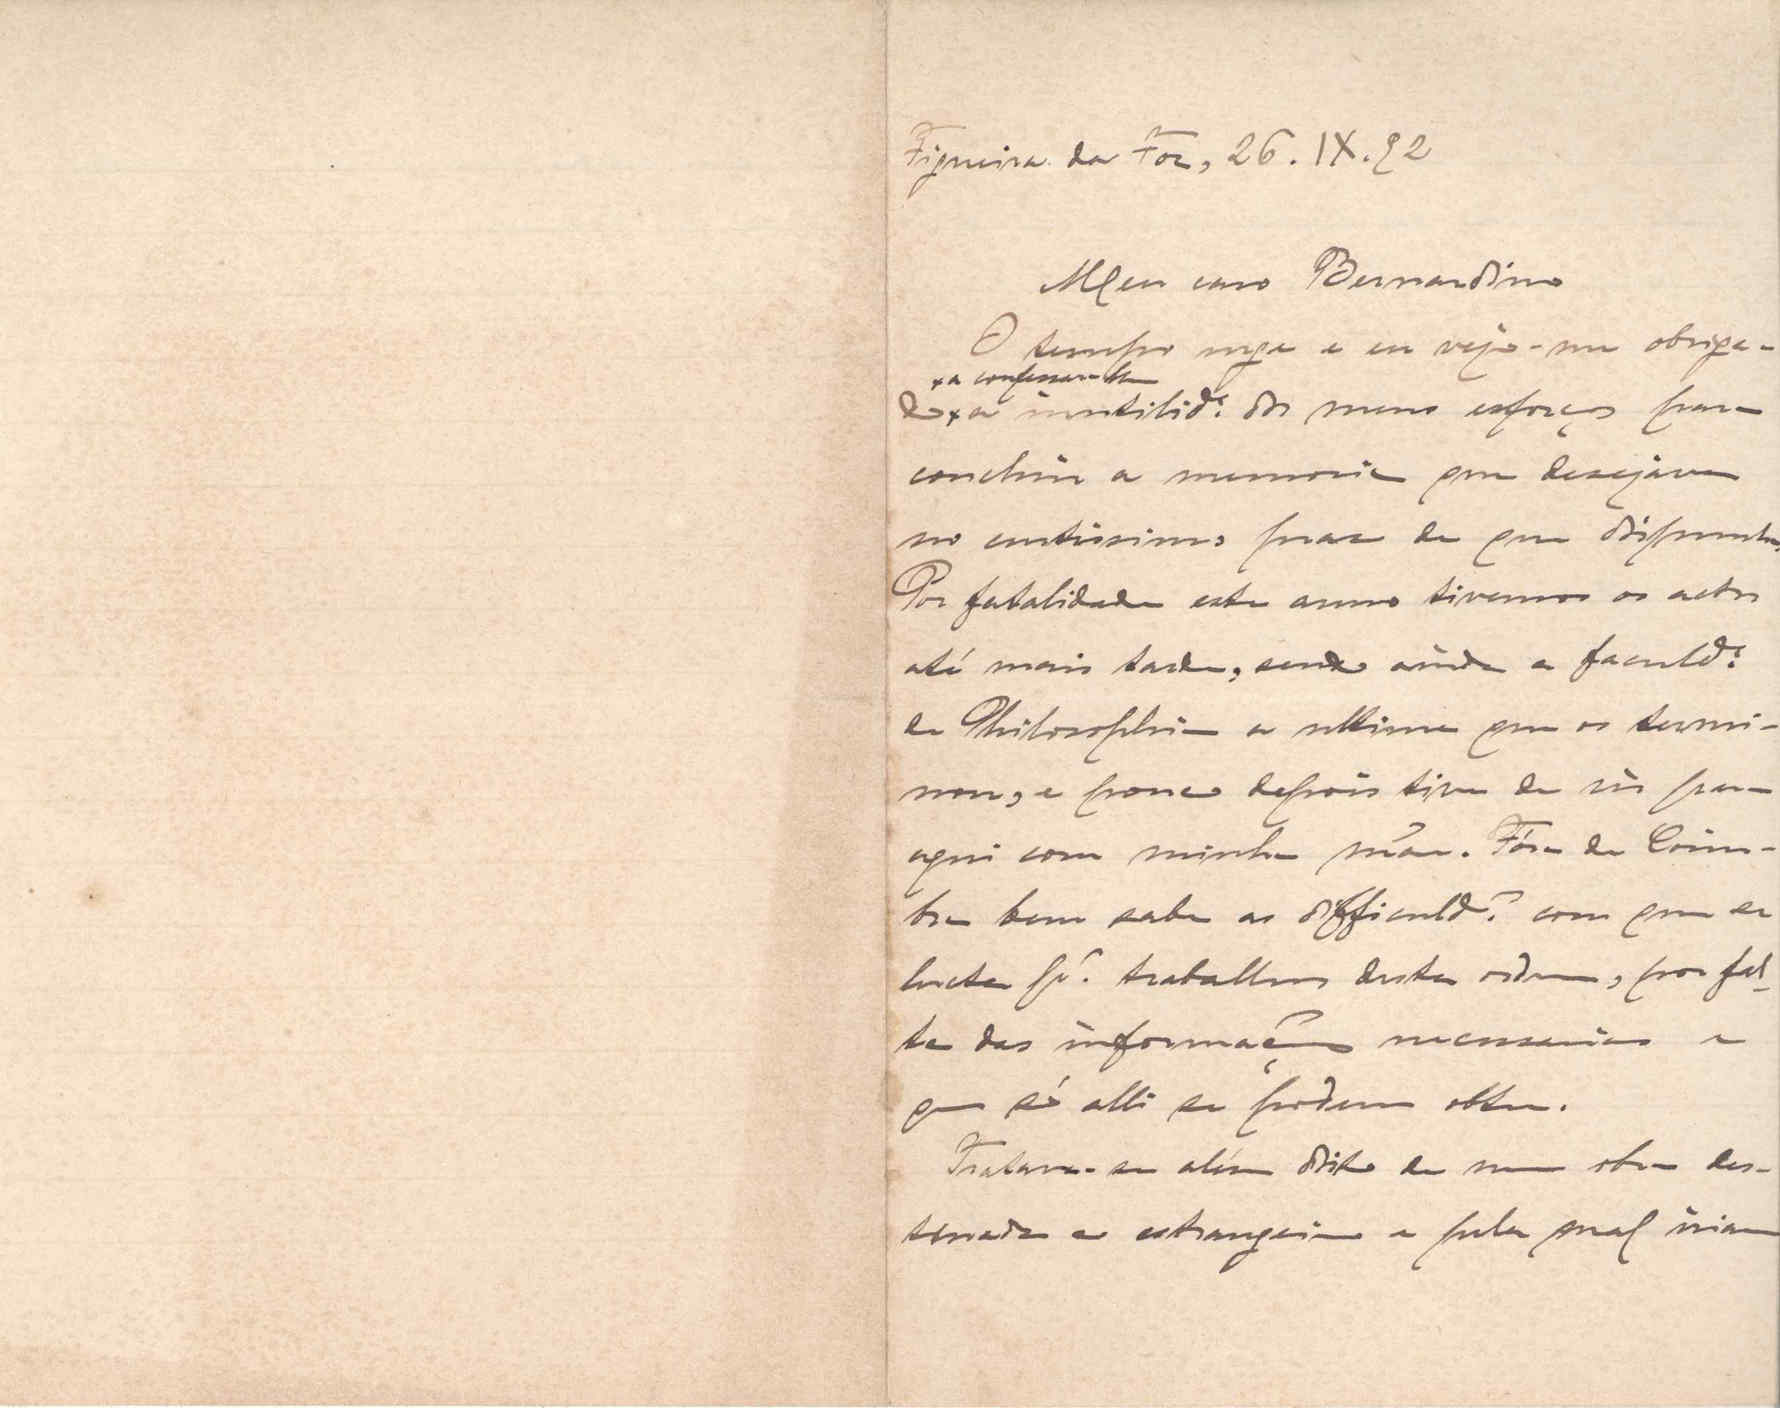 Figueira da Foz, 26. IX. 92
Meu caro Bernardino
O tempo urge e eu vejo-me obriga-
x a confessar-lhe
do x a inutilid.e dos meus esforços para
concluir a memoria que desejava
no curtissimo praso de que dispunha.
Por fatalidade este anno tivemos os actos
até mais tarde, sendo ainda a faculd.e
de Philosophia a ultima que os termi-
nou, e pouco depois tive de vir para
aqui com minha mãe. Fóra de Coim-
bra bem sabe as difficuld.es com que se
lucta p.a trabalhos desta ordem, por fal-
ta das informações necessarias e
que só alli se podem obter.
Tratava-se além disto de uma obra des-
tinada ao estrangeiro e pela qual iriam